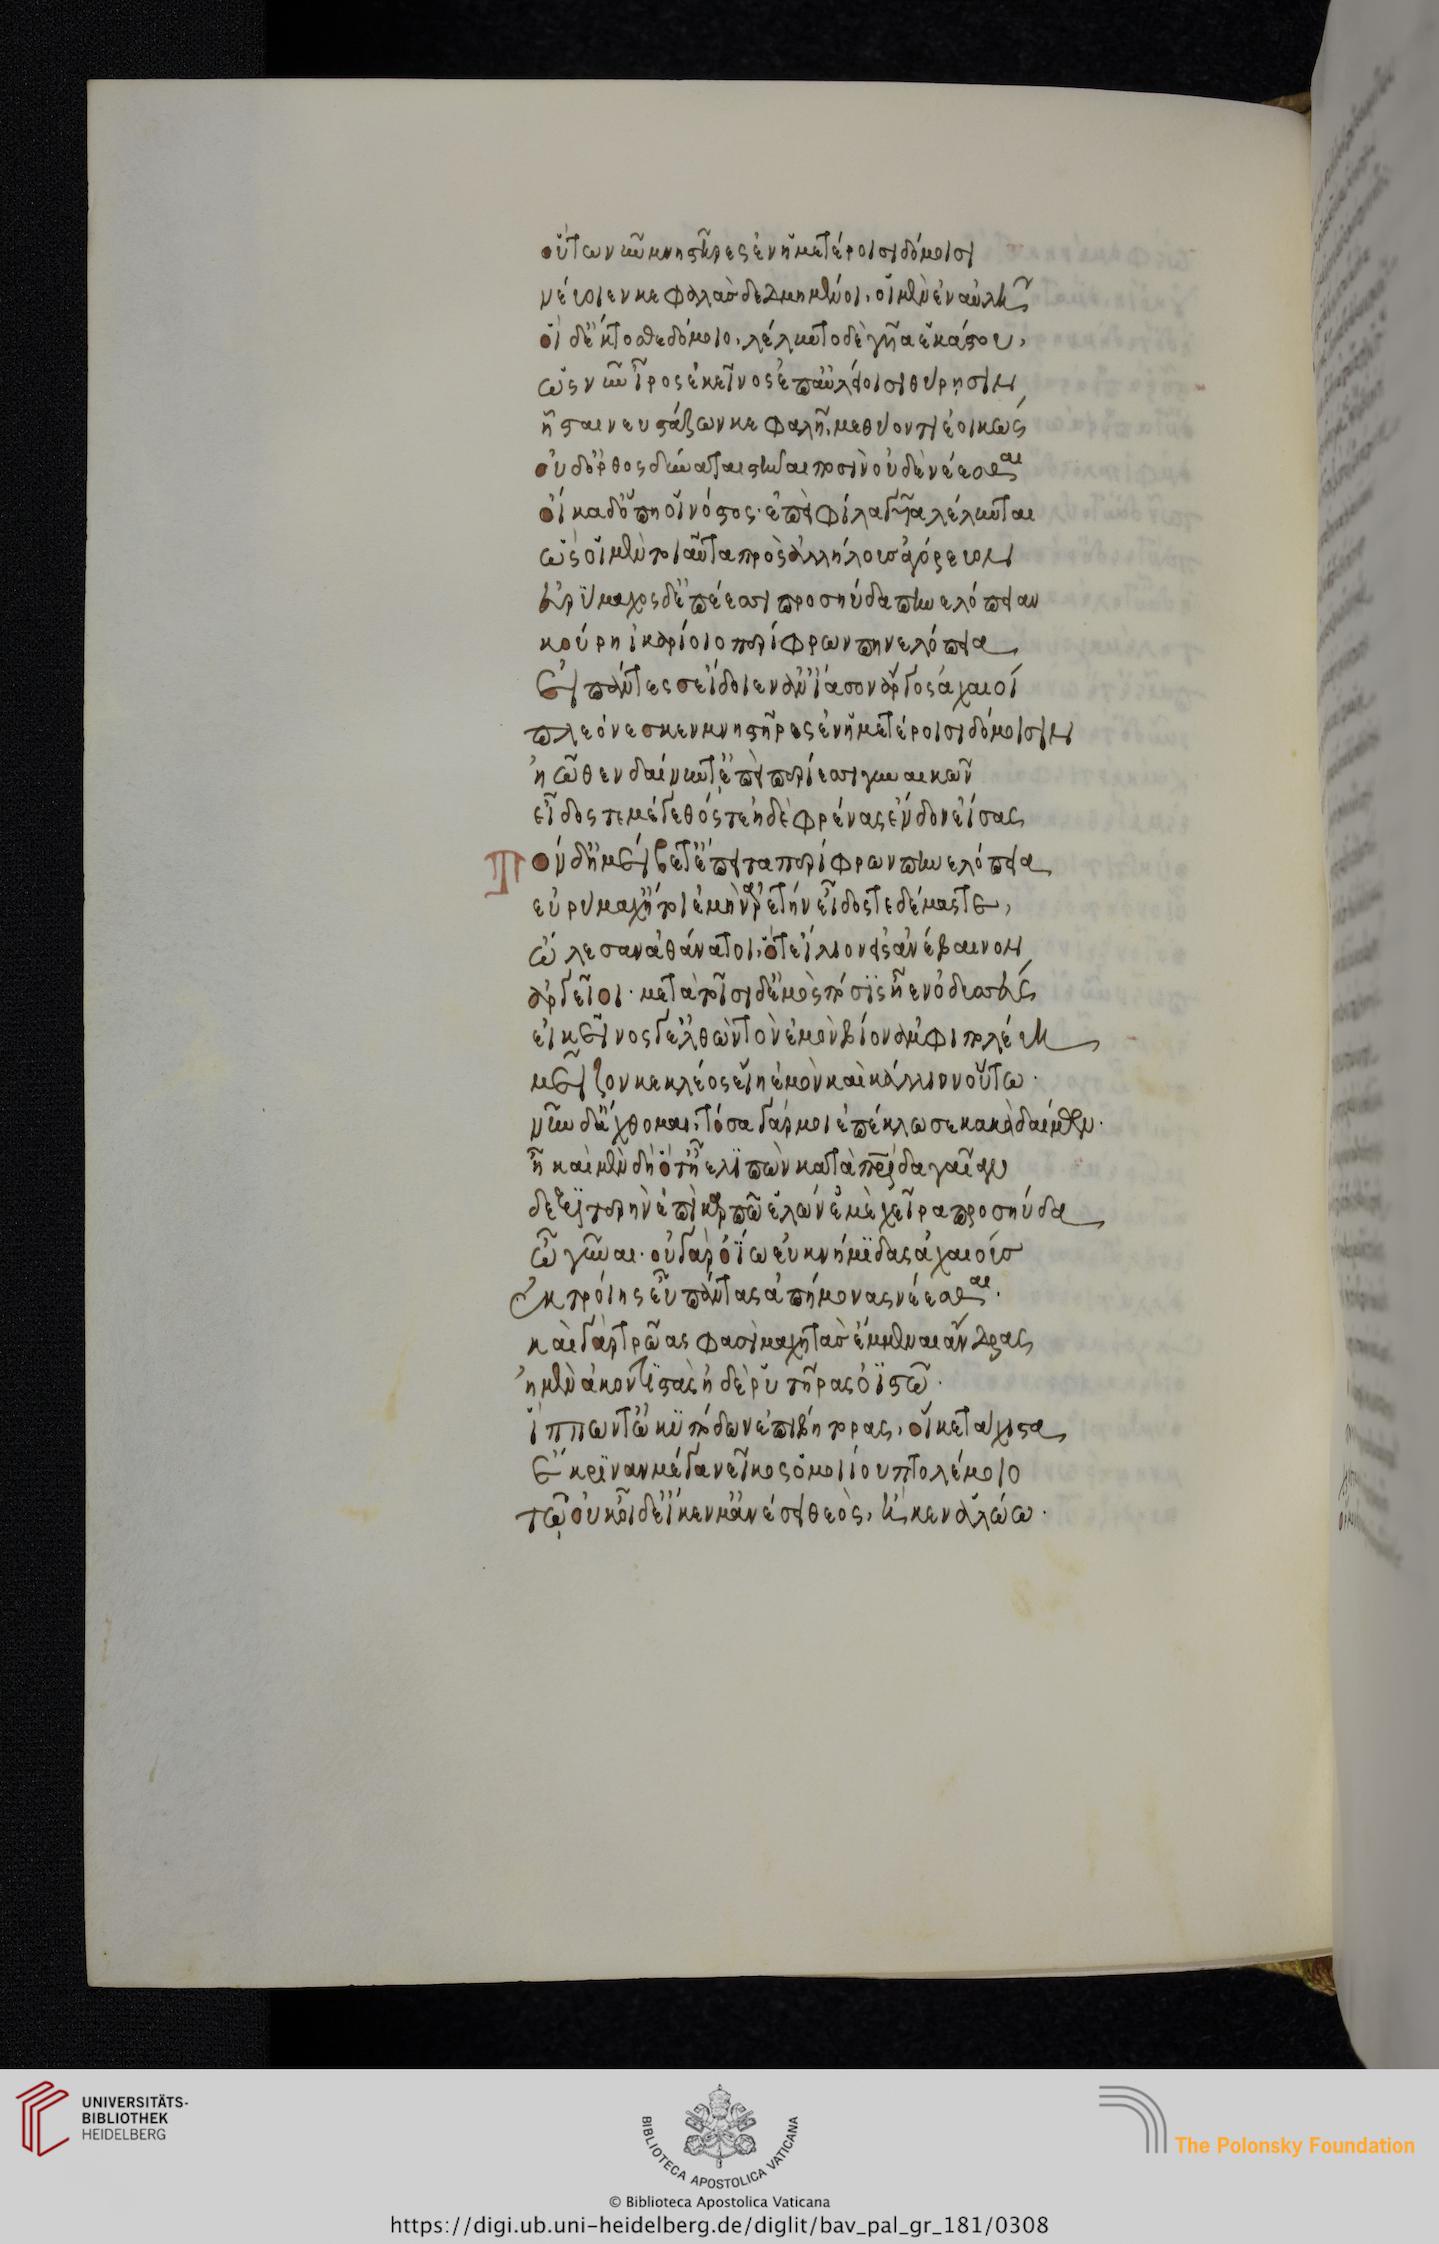 οὕτω νῦν μνηστῆρες ἐν ἡμετέροισι δόμοισι
νεύοιεν κεφαλὰς δεδμημένοι, οἱ μὲν ἐν αὐλῇ
οἱ δ' ἔκτοσθε δόμοιο, λέλυτο δὲ γυῖα ἑκάστου,
ὡς νῦν ἶρος ἐκεῖνος ἐπ' αὐλείοισι θύρῃσιν
ἧσται νευστάζων κεφαλῇ, μεθύοντι ἐοικώς
οὐδ' ὀρθὸς δύναται στῆναι ποσὶν οὐδὲ νέεσθαι
οἴκαδ' ὅπη οἱ νόστος· ἐπεὶ φίλα γυῖα λέλυται
ὣς οἱ μὲν τοιαῦτα πρὸς ἀλλήλους ἀγόρευον
εὐρύμαχος δ' ἐπέεσσι προσηύδα πηνελόπειαν
κούρη ἰκαρίοιο περίφρων πηνελόπεια
εἰ πάντες σε ἴδοιεν ἀν' ἴασον ἄργος ἀχαιοί
πλέονές κεν μνηστῆρες ἐν ἡμετέροισι δόμοισιν
ἠῶθεν δαίνυτ' ἐπεὶ περίεσσι γυναικῶν
εἶδός τε μέγεθός τε ἠδὲ φρένας ἔνδον ἐίσας
Τὸν δ' ἠμείβετ' ἔπειτα περίφρων πηνελόπεια
εὐρύμαχ' ἤτοι ἐμὴν ἀρετὴν εἶδός τε δέμας τε,
ὤλεσαν ἀθάνατοι, ὅτε ἴλιον εἰσανέβαινον
ἀργεῖοι· μετὰ τοῖσι δ' ἐμὸς πόσις ᾖεν ὀδυσσεύς
εἰ κεῖνός γ' ἐλθὼν τὸν ἐμὸν βίον ἀμφιπολεύοι
μεῖζόν κε κλέος εἴη ἐμὸν καὶ κάλλιον οὕτω·
νῦν δ' ἄχθομαι, τόσα γάρ μοι ἐπέκλωσε κακὰ δαίμων·
ἦ καὶ μὲν δὴ ὅτ' ᾖε λιπὼν κατὰ πατρίδα γαῖαν
δεξιτερὴν ἐπὶ καρπῷ ἑλὼν ἐμὲ χεῖρα προσηύδα
ὦ γύναι· οὐ γὰρ ὀΐω ἐυκνήμιδας ἀχαιούς
ἐκ τροίης εὖ πάντας ἀπήμονας νέεσθαι·
καὶ γὰρ τρῶάς φασι μαχητὰς ἔμμεναι ἄνδρας
ἠμὲν ἀκοντιστὰς ἠδὲ ῥυτῆρας ὀϊστῶν·
ἵππων τ' ὠκυπόδων ἐπιβήτορας, οἵ κε τάχιστα
ἔκριναν μέγα νεῖκος ὁμοιίου πτολέμοιο
τῷ οὐκ οἶδ' εἴ κέν μ' ἀνέσει θεός, ἦ κεν ἁλώω·
UNIVERSITÄTS-
BIBLIOTHEK
HEIDELBERG
BIBLIOTECA APOSTOLICA VATICANA
The Polonsky Foundation
© Biblioteca Apostolica Vaticana
https://digi.ub.uni-heidelberg.de/diglit/bav_pal_gr_181/0308